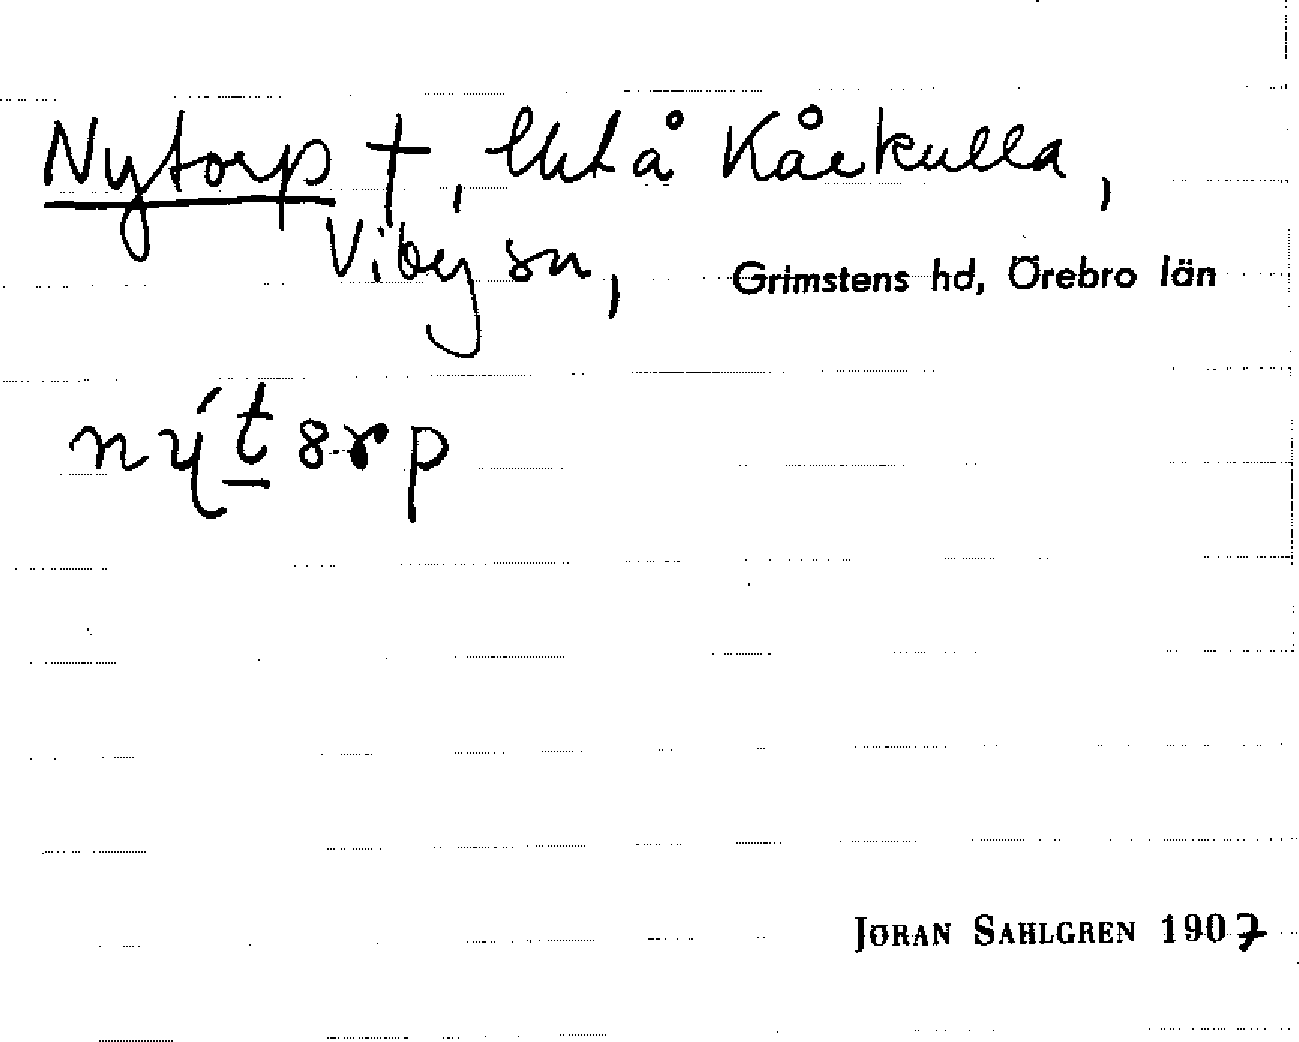 Nytorp †, lht å Kårkulla,
Viby sn, Grimstens hd, Örebro län
nýt̲8rp
JÖRAN SAHLGREN 1907